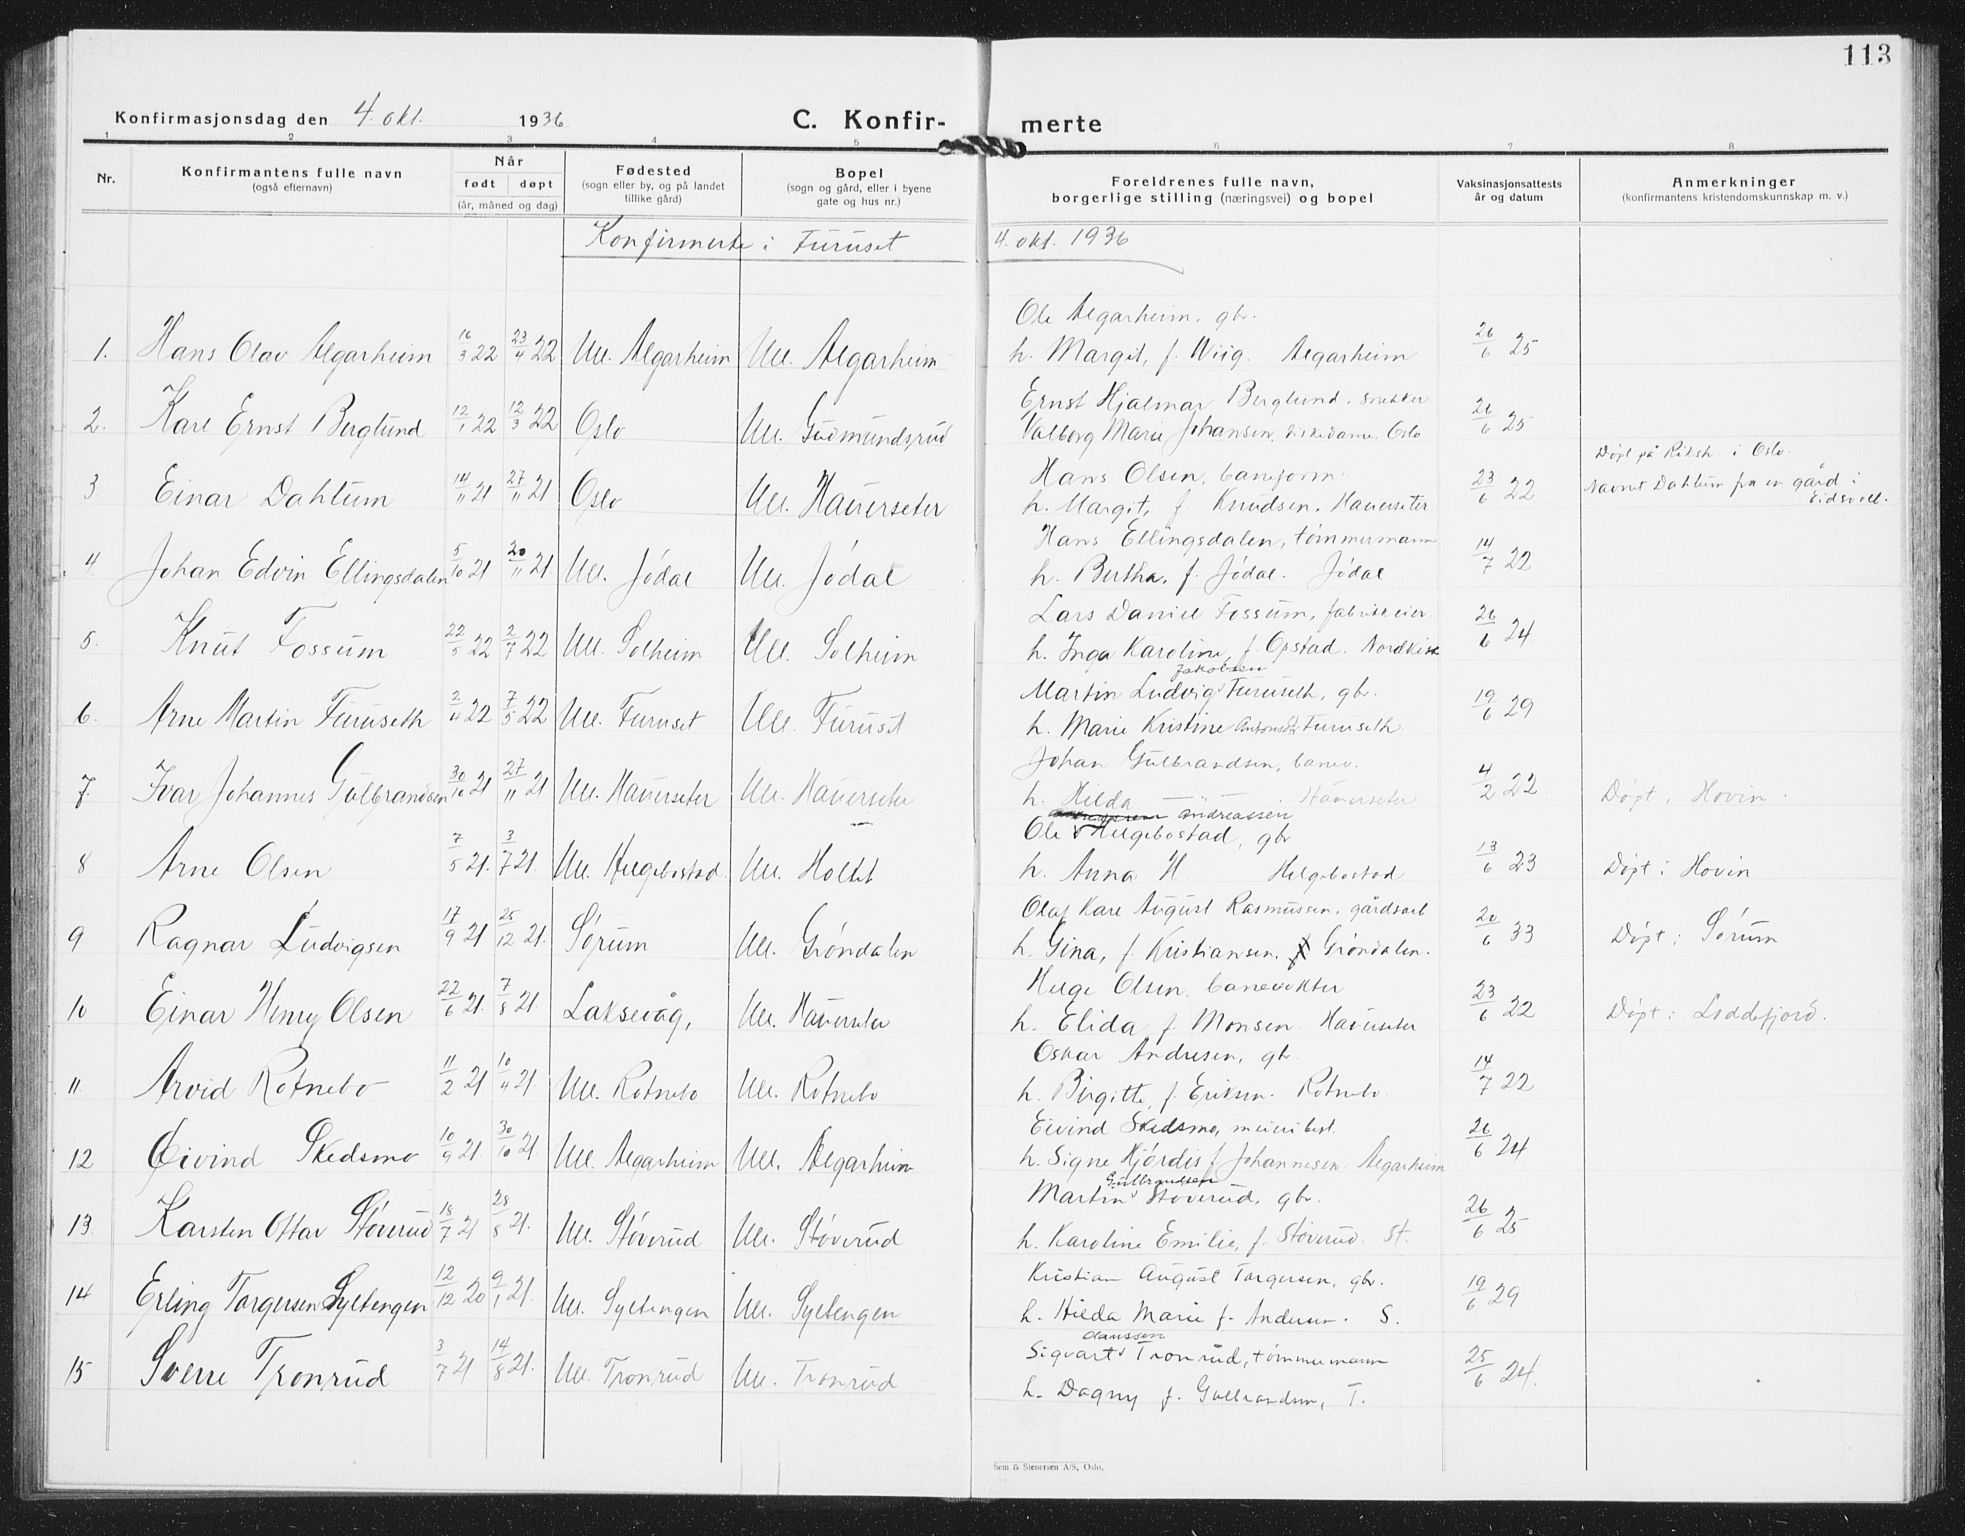 113
Konfirmasjonsdag den 4. okt. 1936 C. Konfir- merte
1 2 3 4 5 6 7 8
Nr. Konfirmantens fulle navn (også efternavn) Når født døpt (år, måned og dag) Fødested (sogn eller by, og på landet tillike gård) Bopel (sogn og gård, eller i byene gate og hus nr.) Foreldrenes fulle navn, borgerlige stilling (næringsvei) og bopel Vaksinasjonsattests år og datum Anmerkninger (konfirmantens kristendomskunnskap m. v.)
Konfirmerte i Furuset 4. okt. 1936
Ole Algarheim, gbr.
1. Hans Olav Algarheim 16/3 22 23/4 22 Ull. Algarheim Ull. Algarheim h. Margit, f. Wiig. Algarheim 26/6 25
Ernst Hjalmar Berglund, snekker
2. Kare Ernst Berglund 12/1 22 12/3 22 Oslo Ull. Gudmundsrud Valborg Marie Johansen, diskedame, Oslo 26/6 25
Døpt på Riksh. i Oslo.
Hans Olsen, baneform.
3. Einar Dahlum 14/11 21 27/11 21 Oslo Ull. Hauerseter h. Margit, f. Knudsen, Hauerseter 23/6 22 Navnet Dahlum fra en gård i Eidsvoll.
Hans Ellingsdalen, tømmermann
4. Johan Edvin Ellingsdalen 5/10 21 20/11 21 Ull. Jødal Ull. Jødal h. Bertha, f. Jødal. Jødal 14/7 22
Lars Daniel Fossum, fabrikkeier.
5. Knut Fossum 22/5 22 2/7 22 Ull. Solheim Ull. Solheim h. Inga Karoline, f. Opstad. Nordkisa 26/6 24
Jakobsen
Martin Ludvig Furuseth, gbr.
6. Arne Martin Furuseth 2/4 22 7/5 22 Ull. Furuset Ull. Furuset h. Marie Kristine Antonsdt Furuseth 19/6 29
Johan Gulbrandsen, banev.
7. Ivar Johannes Gulbrandsen 30/10 21 27/11 21 Ull. Hauerseter Ull. Hauerseter h. Hilda — " — . Hauerseter 4/2 22 Døpt i Hovin.
Andreassen
Ole Helgebostad, gbr.
8 Arne Olsen 7/5 21. 3/7 21. Ull. Helgebostad. Ull. Holtet h. Anna H. Helgebostad 13/6 23 Døpt i Hovin
Olaf Kare August Rasmussen, gårdsarb
9 Ragnar Ludvigsen 17/9 21 25/12 21. Sørum Ull. Grøndalen h. Gina, f. Kristiansen, Grøndalen. 20/6 33 Døpt i Sørum
Helge Olsen, banevokter
10 Einar Henry Olsen 22/6 21. 7/8 21. Laksevåg, Ull. Hauerseter h. Elida f. Monsen. Hauerseter 23/6 22 Døpt i Loddefjord.
Oskar Andresen, gbr.
11. Arvid Rotnebo 11/2 21 10/4 21. Ull. Rotnebo Ull. Rotnebo h. Birgitte, f. Eriksen. Rotnebo. 14/7 22
Eivind Skedsmo, meieribest.
12 Øivind Skedsmo 10/9 21. 30/10 21. Ull. Algarheim Ull. Algarheim h. Signe Hjördis f. Johannesen. Algarheim 26/6 24
Gulbrandsen
Martin Støverud, gbr.
13 Karsten Ottar Støverud 18/7 21 28/8 21. Ull. Støverud Ull. Støverud h. Karoline Emilie, f. Støverud. St. 26/6 25
Kristian August Torgersen, gbr.
14 Erling Torgersen Syltengen 12/12 20 9/1 21. Ull. Syltengen Ull. Syltengen h. Hilda Marie f. Andersen. S. 19/6 29
Sigvart Tronrud, tømmermann
15 Sverre Tronrud 3/7 21 14/8 21. Ull. Tronrud Ull. Tronrud h. Dagny f. Gulbrandsen, T. 25/6 24.
Sem & Stenersen A/S, Oslo.